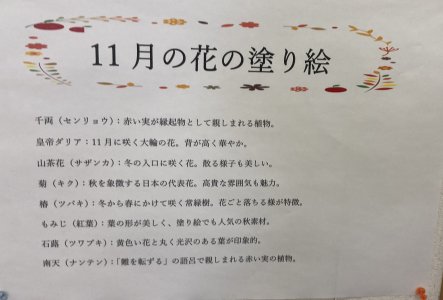 11月の花の塗り絵
千両（センリョウ）：赤い実が縁起物として親しまれる植物。
皇帝ダリア：11月に咲く大輪の花。背が高く華やか。
山茶花（サザンカ）：冬の入口に咲く花。散る様子も美しい。
菊（キク）：秋を象徴する日本の代表花。高貴な雰囲気も魅力。
椿（ツバキ）：冬から春にかけて咲く常緑樹。花ごと落ちる様が特徴。
もみじ（紅葉）：葉の形が美しく、塗り絵でも人気の秋素材。
石蕗（ツワブキ）：黄色い花と丸く光沢のある葉が印象的。
南天（ナンテン）：「難を転ずる」の語呂で親しまれる赤い実の植物。